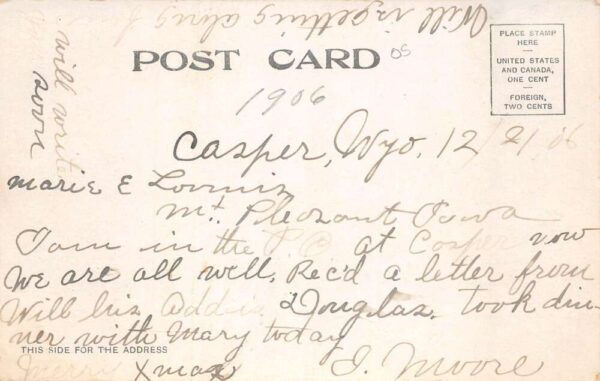 Will is getting along f
will write
soon
POST CARD
OS
PLACE STAMP
HERE
UNITED STATES
AND CANADA,
ONE CENT
FOREIGN,
TWO CENTS
1906
Casper, Wyo. 12/21/06
Marie E Loomis
Mt. Pleasant Iowa
I am in the P.O. at Casper now
We are all well. Rec'd a letter from
Will his Addis Douglas. took din-
ner with Mary today
THIS SIDE FOR THE ADDRESS
Merry Xmas J. Moore